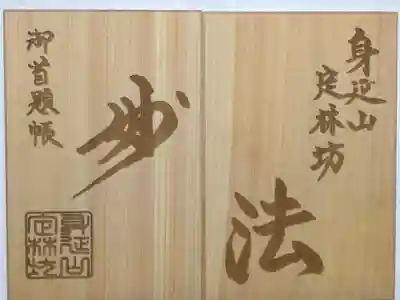 身延山
定林坊
妙
法
御首題帳
身延山
定林坊